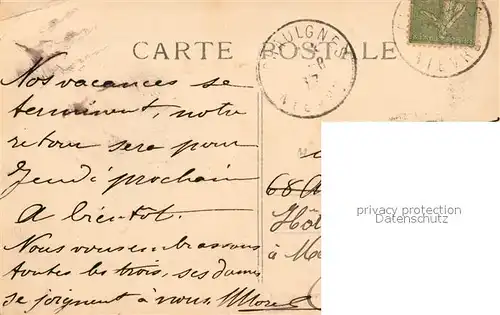 CARTE POSTALE
Nos vacances se
terminent, notre
retour sera pour
Jeudi prochain
A bientot.
Nous vous embrassons
toutes les trois, ses dames
se joignent à nous.
68
Hôt
à Me
privacy protection
Datenschutz